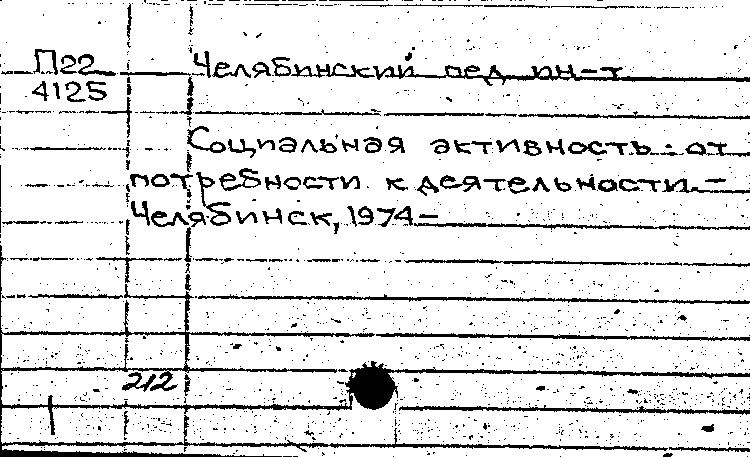 П22 Челябинский пед. ин-т
4125
Социальная активность: от
потребности к деятельности. –
Челябинск, 1974 –
212